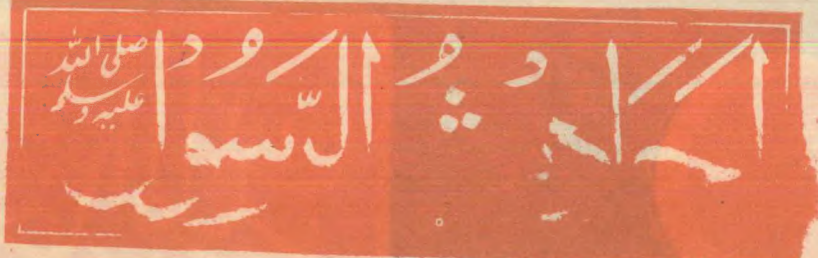 احادیثُ الرّسول صلی اللہ علیہ وسلم